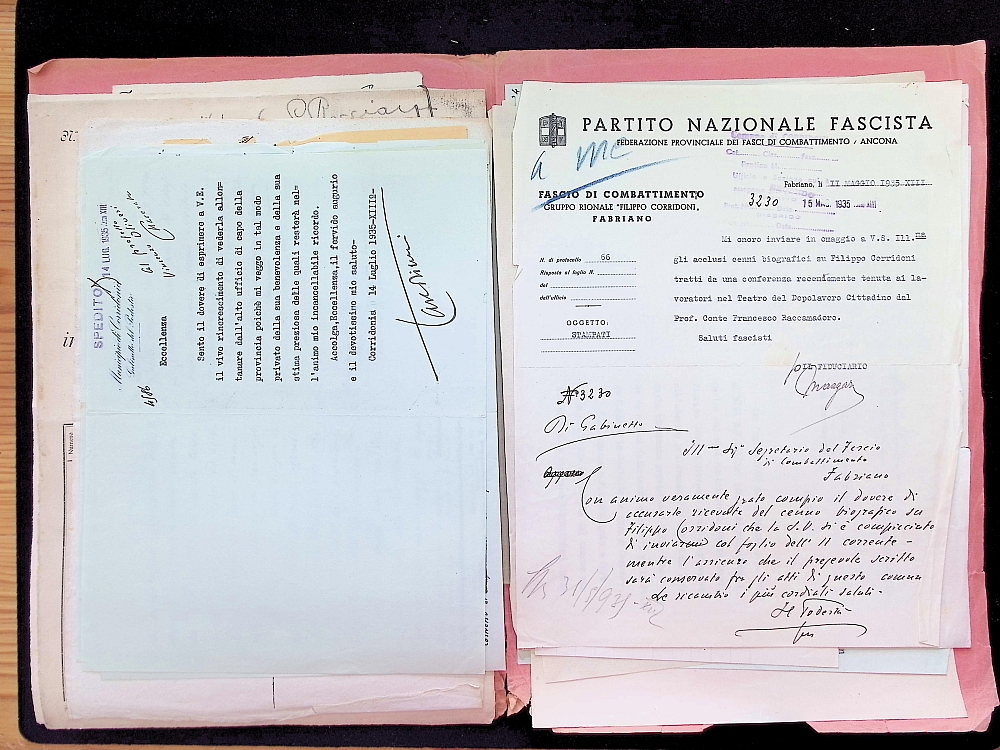 SPEDITO
14 LUG. 1935 Anno XIII
Municipio di Corridonia
Gabinetto del Podestà
4186
Eccellenza
Sento il dovere di esprimere a V.E.
il vivo rincrescimento di vederla allon-
tanare dall'alto ufficio di capo della
provincia poichè mi veggo in tal modo
privato della sua benevolenza e della sua
stima preziosa delle quali resterà nel-
l'animo mio incancellabile ricordo.
Accolga, Eccellenza, il fervido augurio
e il devotissimo mio saluto-
Corridonia 14 Luglio 1935-XIII°-
PARTITO NAZIONALE FASCISTA
FEDERAZIONE PROVINCIALE DEI FASCI DI COMBATTIMENTO / ANCONA
a MC
FASCIO DI COMBATTIMENTO
GRUPPO RIONALE "FILIPPO CORRIDONI,
FABRIANO
Fabriano, li 11 MAGGIO 1935 XIII
3230 15 MAG. 1935 Anno XIII
N. di protocollo 66
Risposta al foglio N.
del
dell'ufficio
OGGETTO:
STAMPATI
Mi onoro inviare in omaggio a V.S. Ill.ma
gli acclusi cenni biografici su Filippo Corridoni
tratti da una conferenza recentemente tenuta ai la-
voratori nel Teatro del Dopolavoro Cittadino dal
Prof. Conte Francesco Raccamadoro.
Saluti fascisti
IL FIDUCIARIO
N° 3230
Di Gabinetto
Ill- Sig. Segretario del Fascio
di Combattimento
Fabriano
Con animo veramente grato compio il dovere di
accusarle ricevuta del cenno biografico su
Filippo Corridoni che la S.V. si è compiaciuto
di inviarmi col foglio dell'11 corrente-
mentre l'assicuro che il pregevole scritto
sarà conservato fra gli atti di questo comune
Le ricambio i più cordiali saluti-
Il Podestà